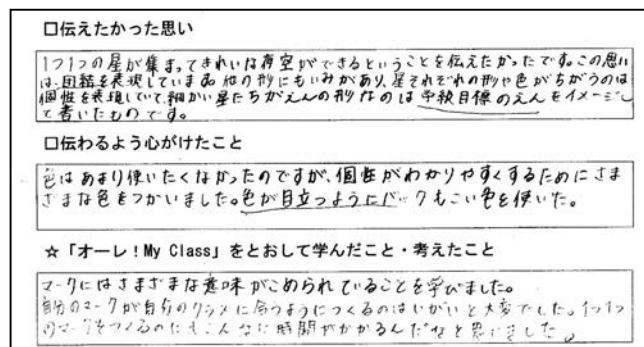 □伝えたかった思い
1つ1つの星が集まってきれいな夜空ができるということを伝えたかったです。この思い
は、団結を表現しています。他の形にもいみがあり、星それぞれの形や色がちがうのは
個性を表現していて、細かい星たちがえんの形なのは学級目標のえんをイメージし
て書いたものです。
□伝わるよう心がけたこと
色はあまり使いたくなかったのですが、個性がわかりやすくするためにさま
ざまな色をつかいました。色が目立つようにバックもこい色を使いた。
☆「オーレ!My Class」をとおして学んだこと・考えたこと
マークにはさまざまな意味がこめられていることを学びました。
自分のマークが自分のクラスに合うようにつくるのはいがいと大変でした。1つ1つ
のマークをつくるのにもこんなに時間がかかるんだなと思いました。